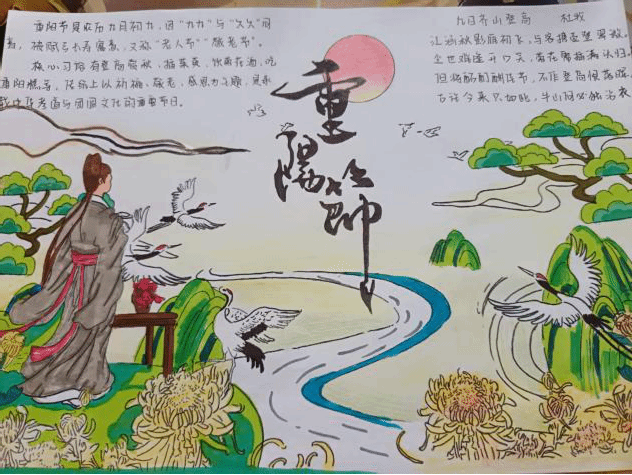 重阳节是农历九月初九，因“九九”与“久久”同
音，被赋予长寿寓意，又称“老人节”“敬老节”。
核心习俗有登高赏秋，插茱萸，饮菊花酒，吃
重阳糕等，传统上以祈福、敬老、感恩为主题，是承
载中华孝道与团圆文化的重要节日。
重阳节
九日齐山登高 杜牧
江涵秋影雁初飞，与客携壶上翠微。
尘世难逢开口笑，菊花须插满头归。
但将酩酊酬佳节，不用登临恨落晖。
古往今来只如此，牛山何必独沾衣